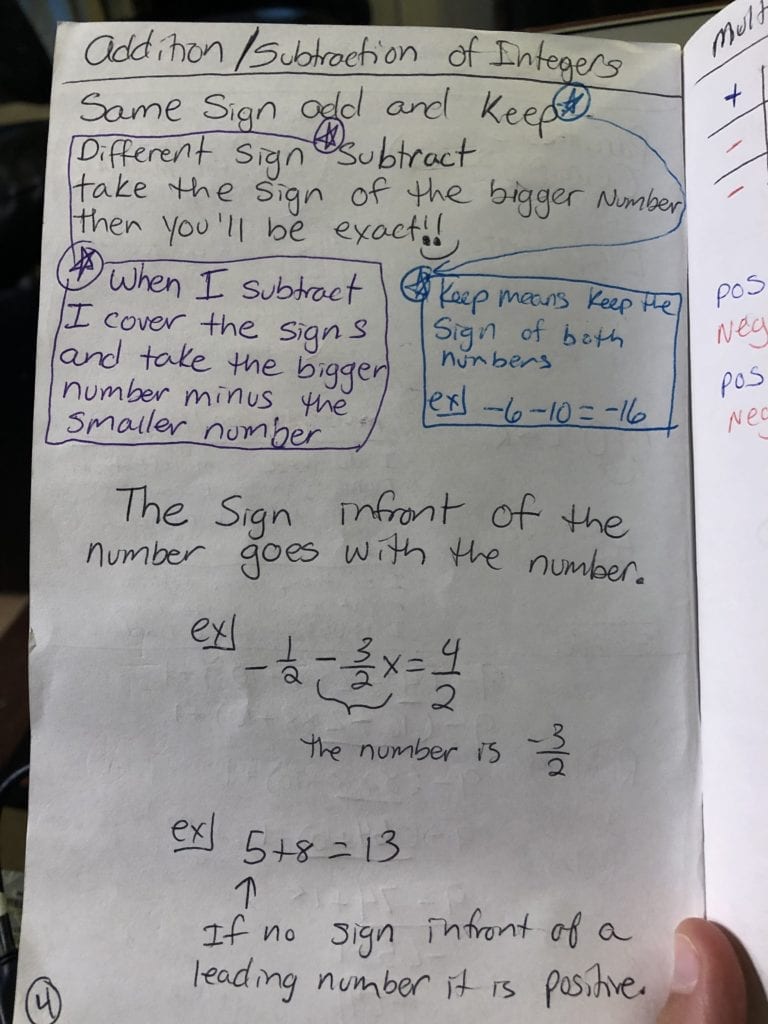 Addition/Subtraction of Integers
Same Sign add and Keep
Different Sign Subtract
take the sign of the bigger Number
then you'll be exact!!
When I subtract
I cover the signs
and take the bigger
number minus the
smaller number
Keep means Keep the
Sign of both
numbers
ex] -6-10=-16
The Sign infront of the
number goes with the number.
ex] -1/2 - 3/2 x = 4/2
the number is -3/2
ex] 5+8=13
↑
If no sign infront of a
leading number it is positive.
4
Mult
+
-
-
pos
Neg
pos
Neg